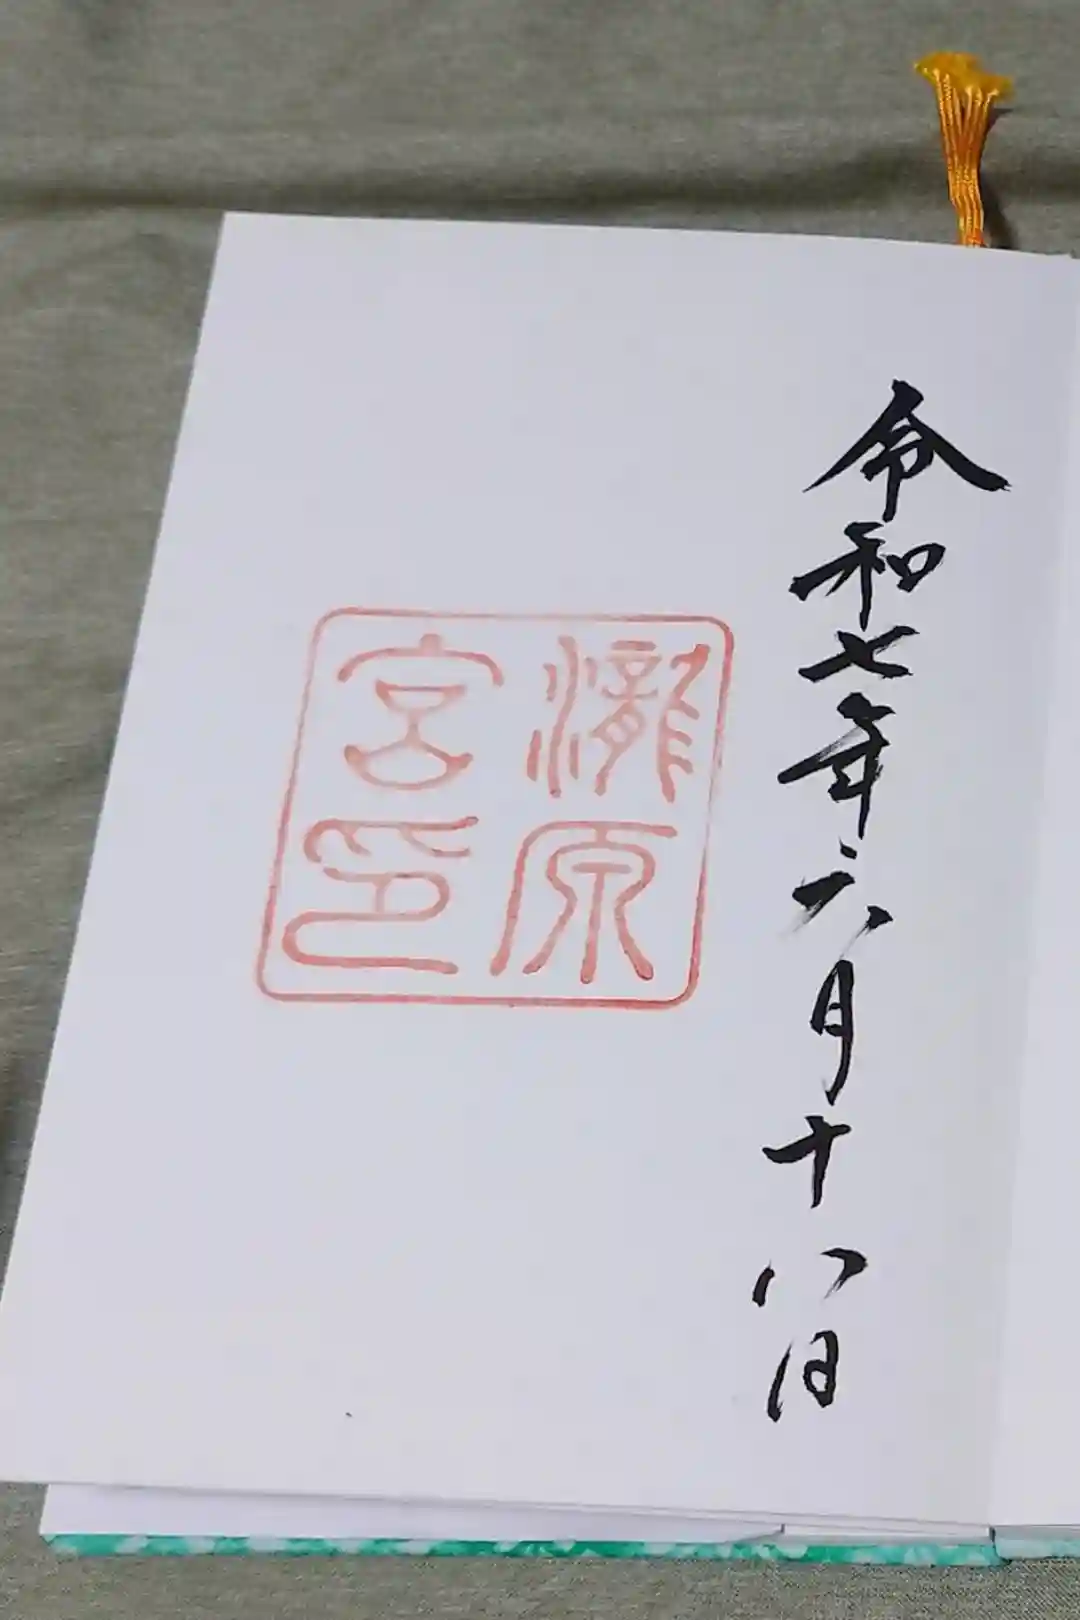 令和七年六月十八日
瀧原
宮印